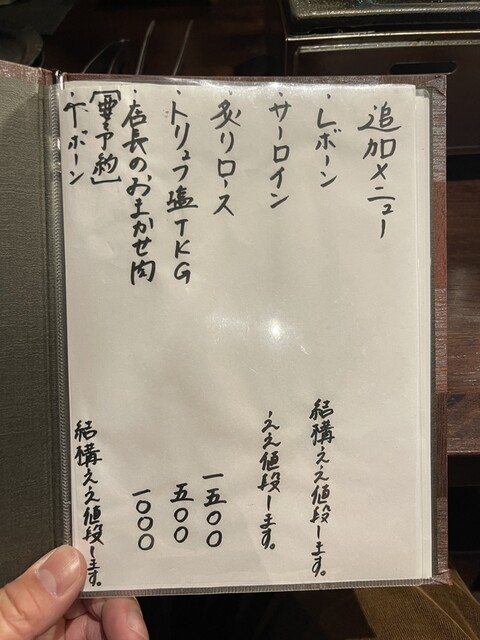 追加メニュー
・Lボーン 結構ええ値段します。
・サーロイン ええ値段します。
・炙りロース 一五〇〇
・トリュフ塩TKG 五〇〇
・店長のおまかせ肉 一〇〇〇
[要予約]
・Tボーン 結構ええ値段します。